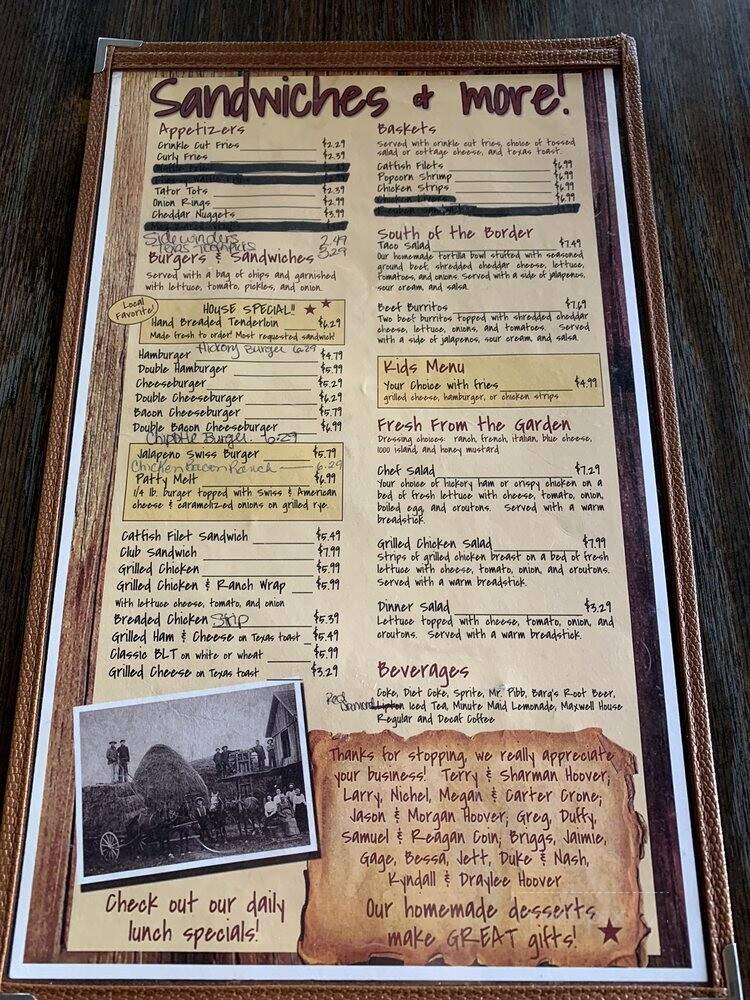 Sandwiches & more!
Appetizers
Crinkle Cut Fries $2.29
Curly Fries $2.39
Tator Tots $2.39
Onion Rings $2.99
Cheddar Nuggets $3.99
Sidewinders 2.49
Texas Toothpicks 3.29
Burgers & Sandwiches
Served with a bag of chips and garnished
with lettuce, tomato, pickles, and onion.
Local
Favorite!
HOUSE SPECIAL!!
Hand Breaded Tenderloin $6.29
Made fresh to order! Most requested sandwich!
Hickory Burger 6.29
Hamburger $4.79
Double Hamburger $5.99
Cheeseburger $5.29
Double Cheeseburger $6.29
Bacon Cheeseburger $5.79
Double Bacon Cheeseburger $6.99
Chipotle Burger 6.29
Jalapeno Swiss Burger $5.79
Chicken Bacon Ranch 6.29
Patty Melt $6.99
1/4 lb. burger topped with Swiss & American
cheese & caramelized onions on grilled rye.
Catfish Filet Sandwich $5.49
Club Sandwich $7.99
Grilled Chicken $5.99
Grilled Chicken & Ranch Wrap $5.99
With lettuce cheese, tomato, and onion
Breaded Chicken Strip $5.39
Grilled Ham & Cheese on Texas toast $5.49
Classic BLT on white or wheat $5.99
Grilled Cheese on Texas toast $3.29
Check out our daily
lunch specials!
Baskets
Served with crinkle cut fries, choice of tossed
salad or cottage cheese, and texas toast.
Catfish Filets $6.99
Popcorn Shrimp $6.99
Chicken Strips $6.99
$6.99
South of the Border
Taco Salad $7.49
Our homemade tortilla bowl stuffed with seasoned
ground beef, shredded cheddar cheese, lettuce,
tomatoes, and onions. Served with a side of jalapenos,
sour cream, and salsa.
Beef Burritos $7.69
Two beef burritos topped with shredded cheddar
cheese, lettuce, onions, and tomatoes. Served
with a side of jalapenos, sour cream, and salsa.
Kids Menu
Your Choice with fries $4.99
grilled cheese, hamburger, or chicken strips
Fresh From the Garden
Dressing choices: ranch, french, italian, blue cheese,
1000 island, and honey mustard
Chef Salad $7.29
Your choice of hickory ham or crispy chicken on a
bed of fresh lettuce with cheese, tomato, onion,
boiled egg, and croutons. Served with a warm
breadstick.
Grilled Chicken Salad $7.99
Strips of grilled chicken breast on a bed of fresh
lettuce with cheese, tomato, onion, and croutons.
Served with a warm breadstick.
Dinner Salad $3.29
Lettuce topped with cheese, tomato, onion, and
croutons. Served with a warm breadstick.
Beverages
Coke, Diet Coke, Sprite, Mr. Pibb, Barq's Root Beer,
Red Diamond Lipton Iced Tea, Minute Maid Lemonade, Maxwell House
Regular and Decaf Coffee
Thanks for stopping, we really appreciate
your business! Terry & Sharman Hoover;
Larry, Nichel, Megan & Carter Crone;
Jason & Morgan Hoover; Greg, Duffy,
Samuel & Reagan Coin; Briggs, Jaimie,
Gage, Bessa, Jett, Duke & Nash,
Kyndall & Draylee Hoover
Our homemade desserts
make GREAT gifts!